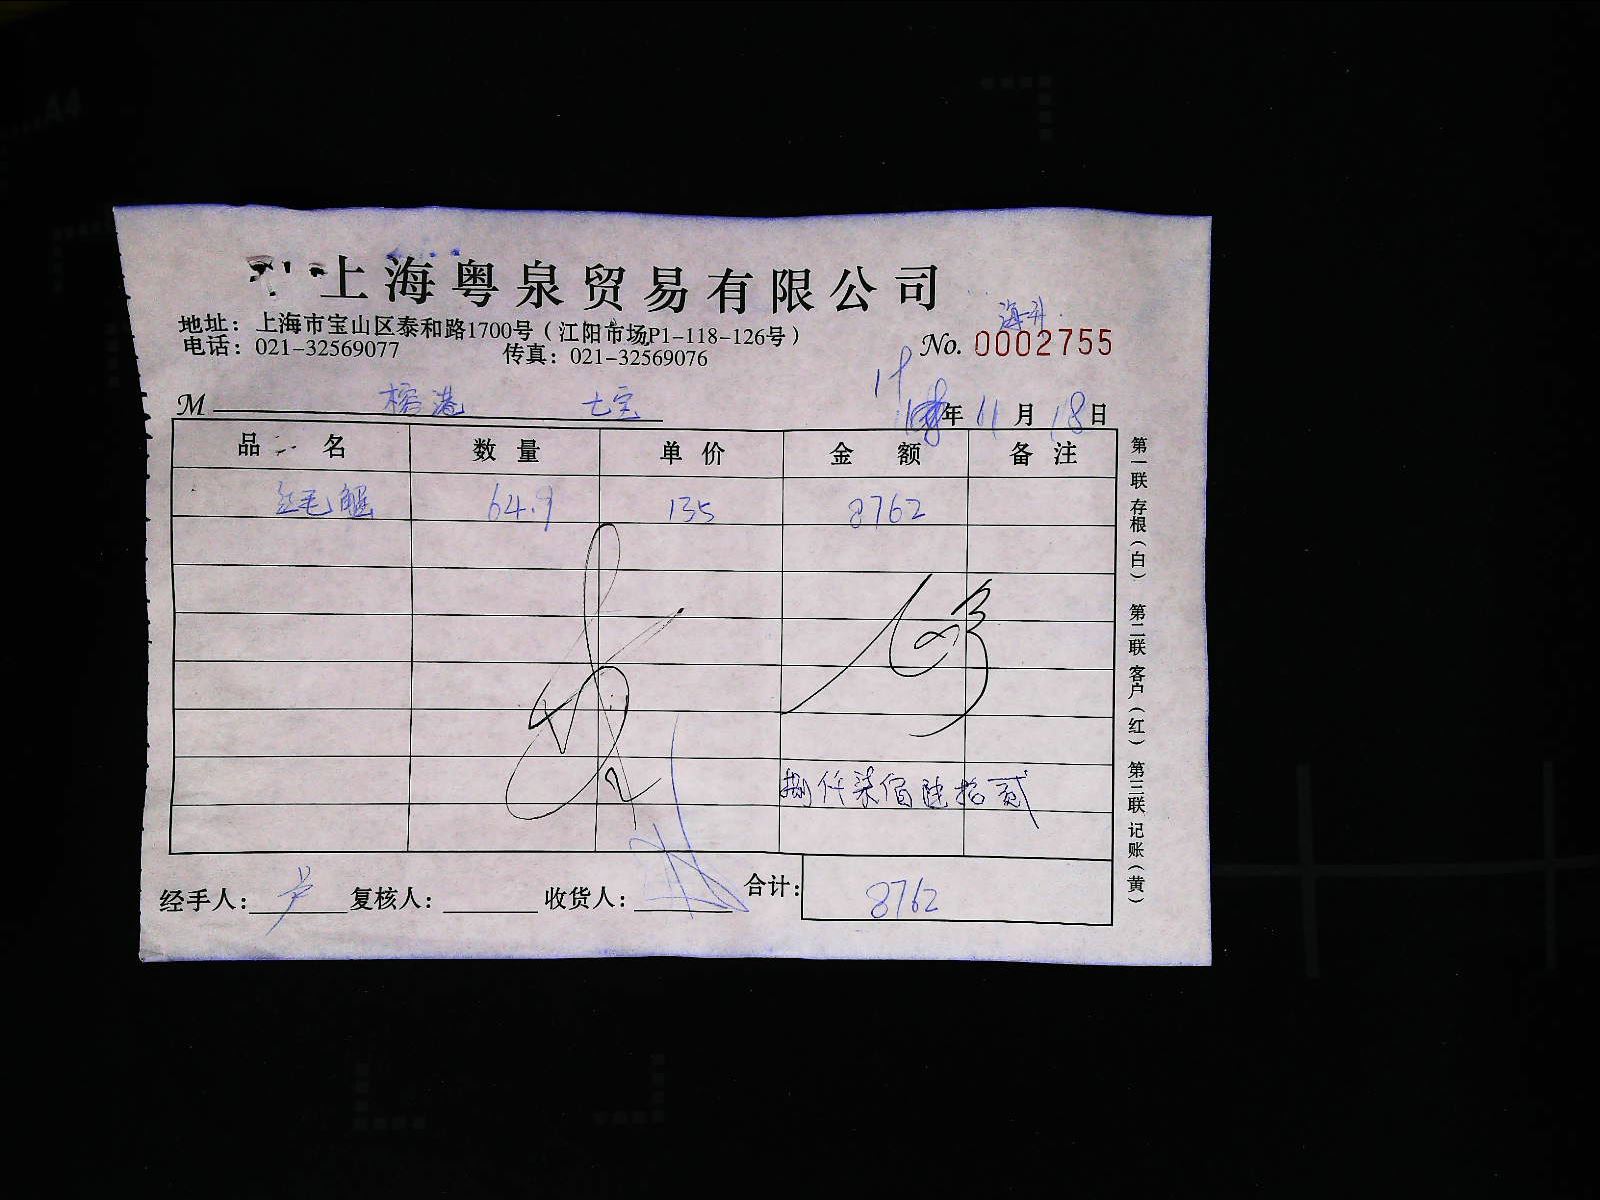 上海粤泉贸易有限公司
地址：上海市宝山区泰和路1700号（江阳市场P1-118-126号）
海升
电话：021-32569077 传真：021-32569076
No. 0002755
M 榕港 七宝
年 11 月 18 日
品名 数量 单价 金额 备注
红毛蟹 64.9 135 8762
捌仟柒佰陆拾贰
经手人： 复核人： 收货人： 合计： 8762
第一联 存根（白） 第二联 客户（红） 第三联 记账（黄）